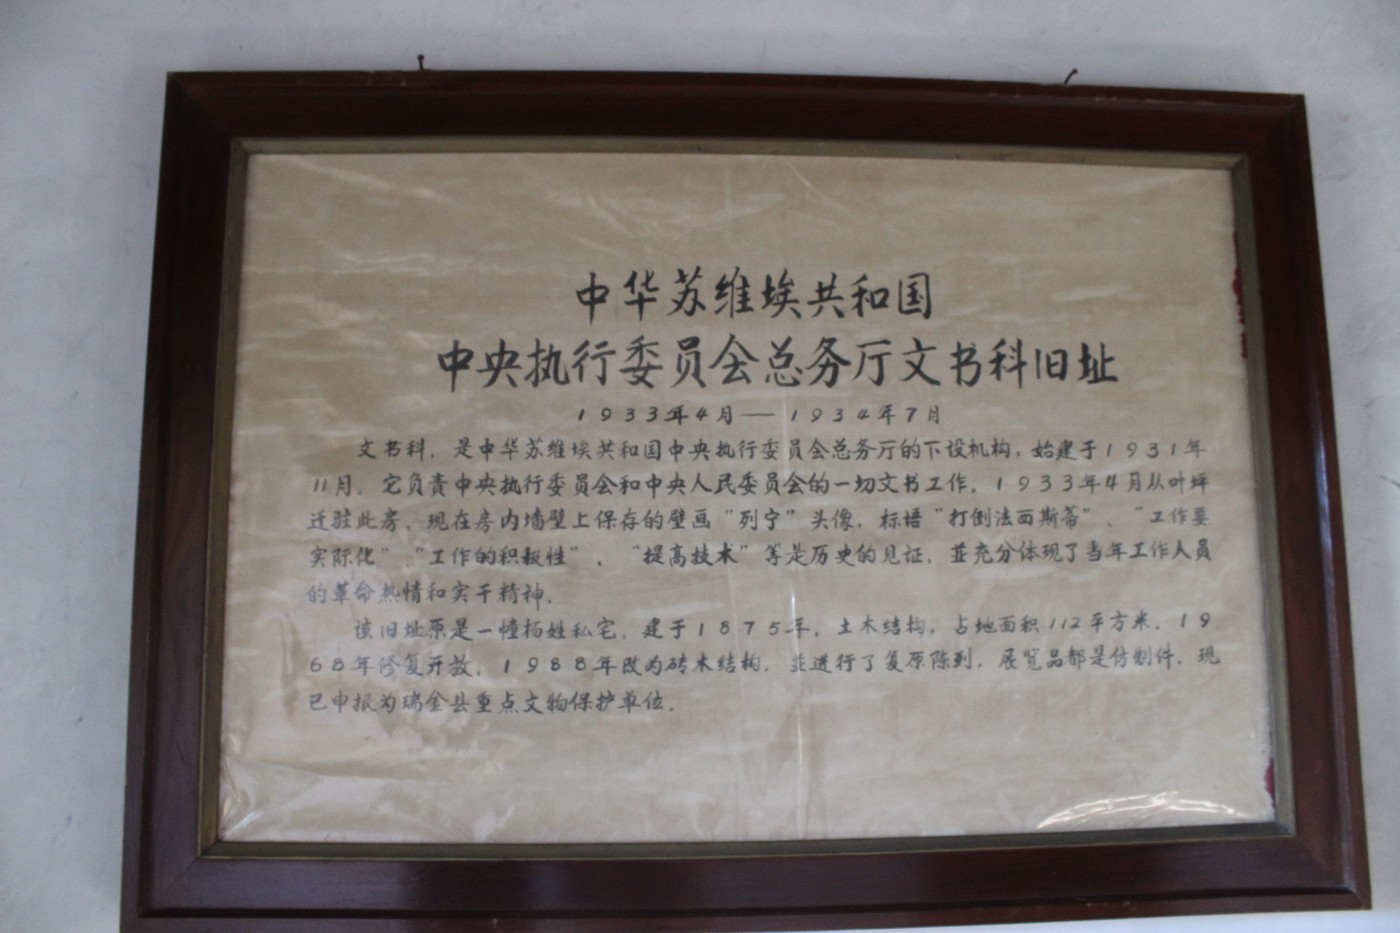 中华苏维埃共和国
中央执行委员会总务厅文书科旧址
1933年4月——1934年7月
文书科，是中华苏维埃共和国中央执行委员会总务厅的下设机构，始建于1931年
11月。它负责中央执行委员会和中央人民委员会的一切文书工作。1933年4月从叶坪
迁驻此房。现在房内墙壁上保存的壁画“列宁”头像，标语“打倒法西斯蒂”、“工作要
实际化”、“工作的积极性”、“提高技术”等是历史的见证，並充分体现了当年工作人员
的革命热情和实干精神。
该旧址原是一幢杨姓私宅，建于1875年，土木结构，占地面积112平方米。19
68年修复开放。1988年改为砖木结构，並进行了复原陈列，展览品都是仿制件。现
已申报为瑞金县重点文物保护单位。